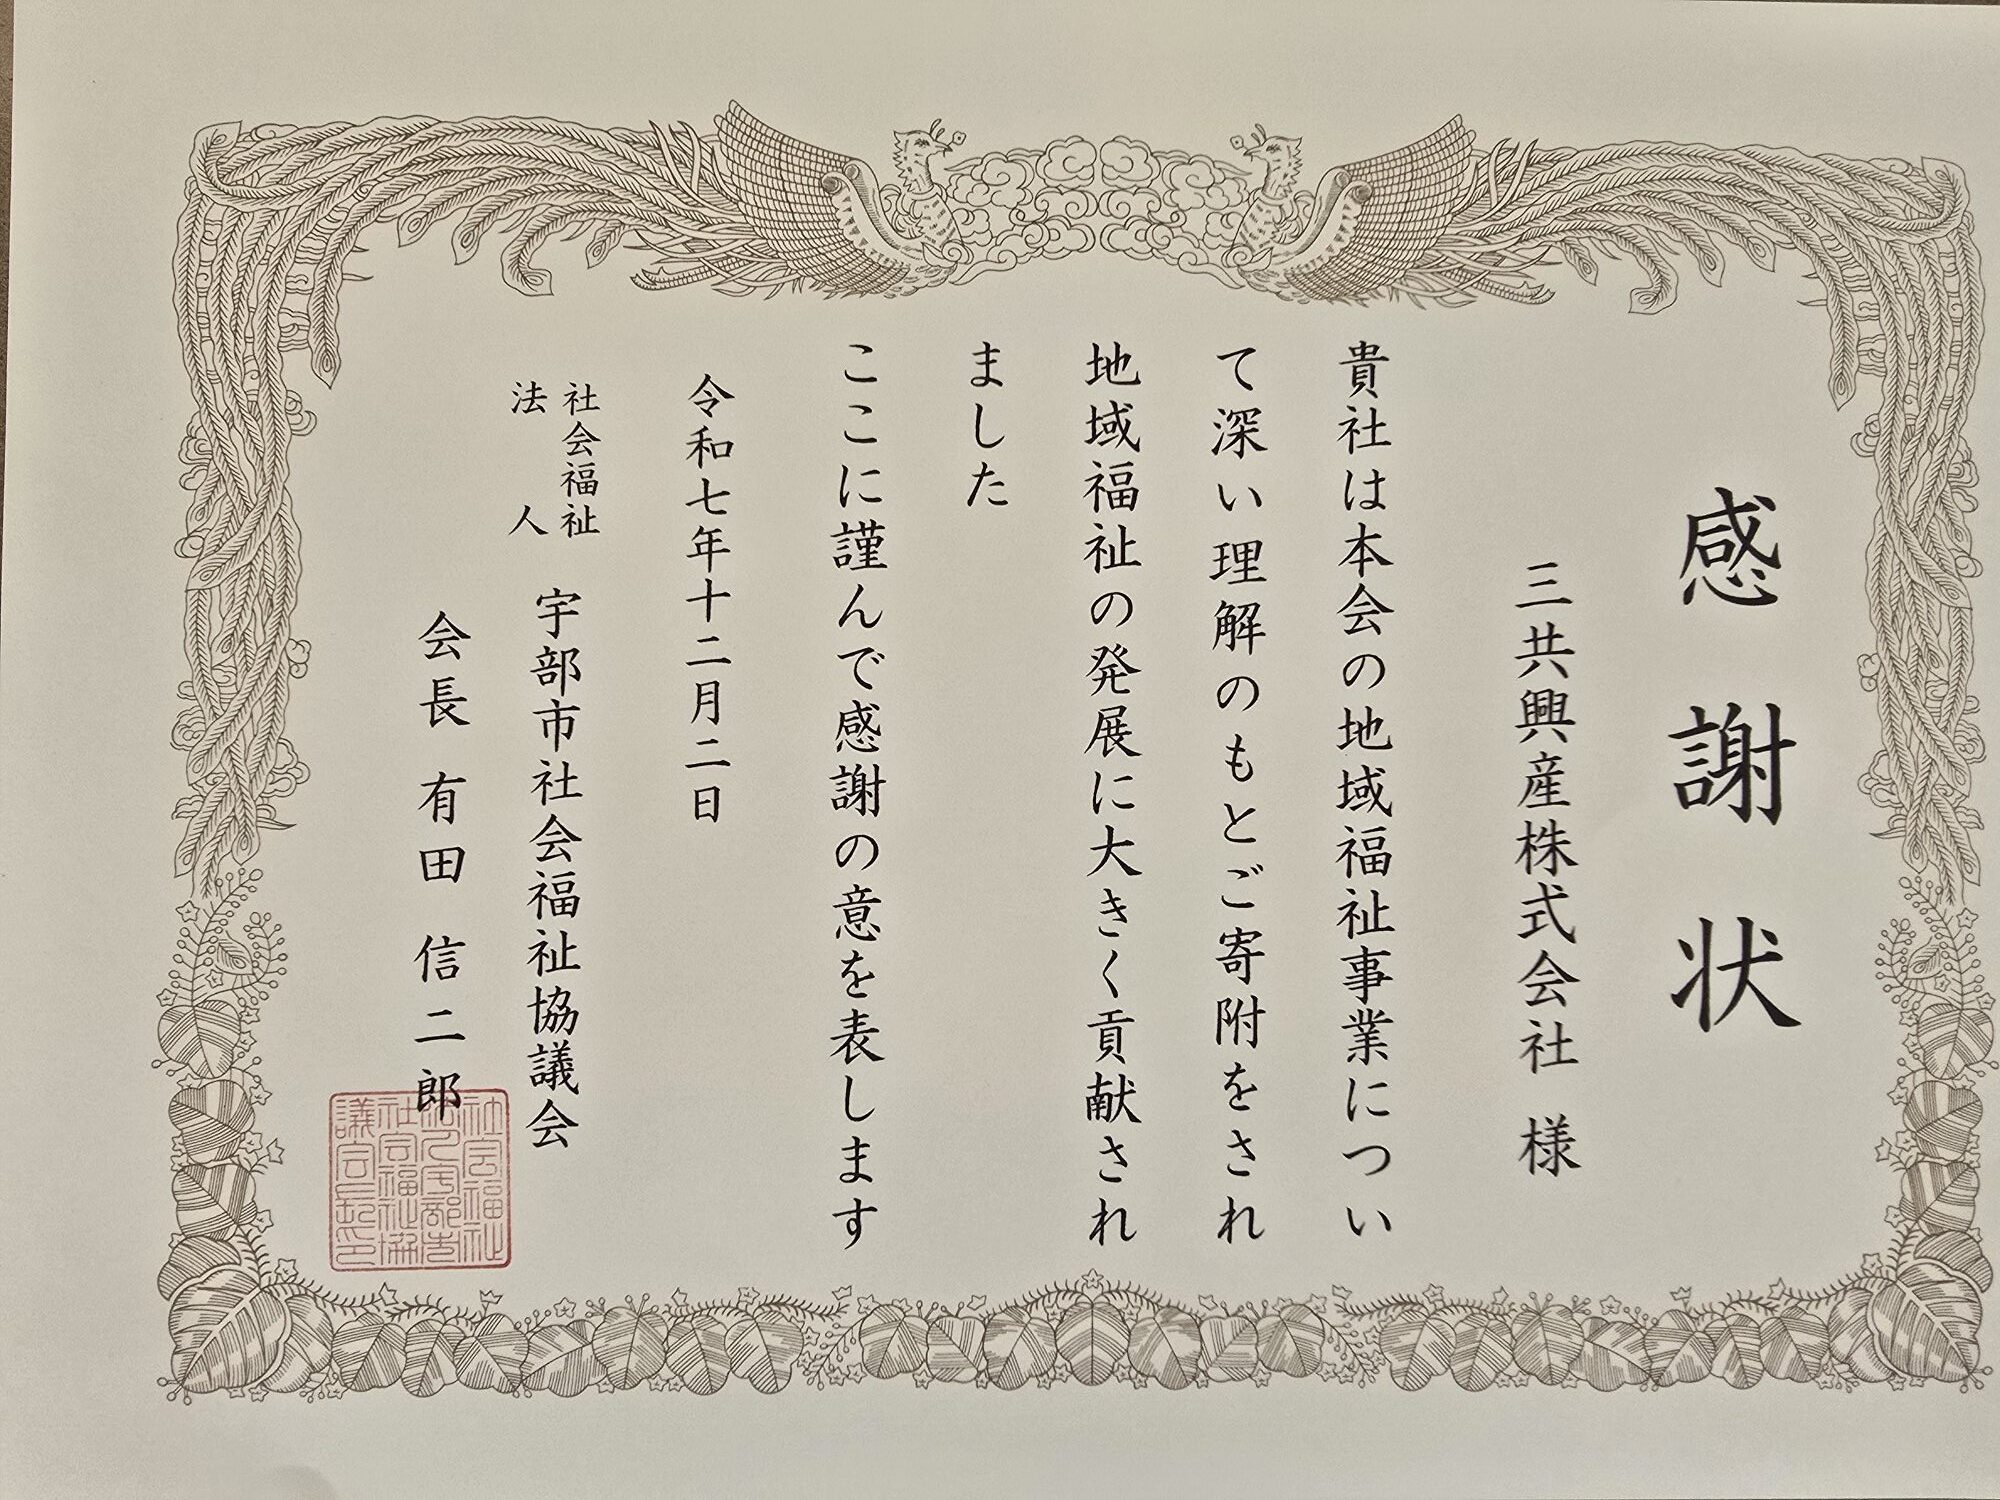 感謝状
三共興産株式会社 様
貴社は本会の地域福祉事業につい
て深い理解のもとご寄附をされ
地域福祉の発展に大きく貢献され
ました
ここに謹んで感謝の意を表します
令和七年十二月二日
社会福祉
法人
宇部市社会福祉協議会
会長 有田 信二郎
社会福祉
法人宇部市
社会福祉協
議会長印